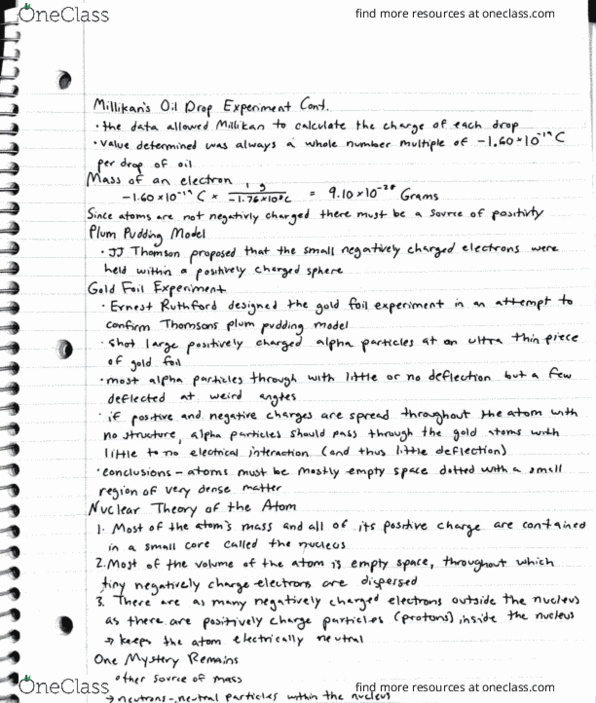 OneClass
find more resources at oneclass.com
Millikan's Oil Drop Experiment Cont.
• the data allowed Millikan to calculate the charge of each drop
• value determined was always a whole number multiple of -1.60×10⁻¹⁹ C
per drop of oil
Mass of an electron
-1.60×10⁻¹⁹ C × 1 g / -1.76×10⁸C = 9.10×10⁻²⁸ Grams
Since atoms are not negativly charged there must be a source of positivty
Plum Pudding Model
• JJ Thomson proposed that the small negatively charged electrons were
held within a positively charged sphere
Gold Foil Experiment
• Ernest Ruthford designed the gold foil experiment in an attempt to
confirm Thomsons plum pudding model
• shot large positively charged alpha particles at an ultra thin piece
of gold foil
• most alpha particles through with little or no deflection but a few
deflected at weird angles
• if positive and negative charges are spread throughout the atom with
no structure, alpha particles should pass through the gold atoms with
little to no electrical interaction (and thus little deflection)
• conclusions - atoms must be mostly empty space dotted with a small
region of very dense matter
Nuclear Theory of the Atom
1. Most of the atom's mass and all of its positive charge are contained
in a small core called the nucleus
2. Most of the volume of the atom is empty space, throughout which
tiny negatively charge electrons are dispersed
3. There are as many negatively charged electrons outside the nucleus
as there are positively charge particles (protons) inside the nucleus
→ keeps the atom electrically neutral
One Mystery Remains
• other source of mass
→ neutrons - neutral particles within the nucleus
OneClass
find more resources at oneclass.com